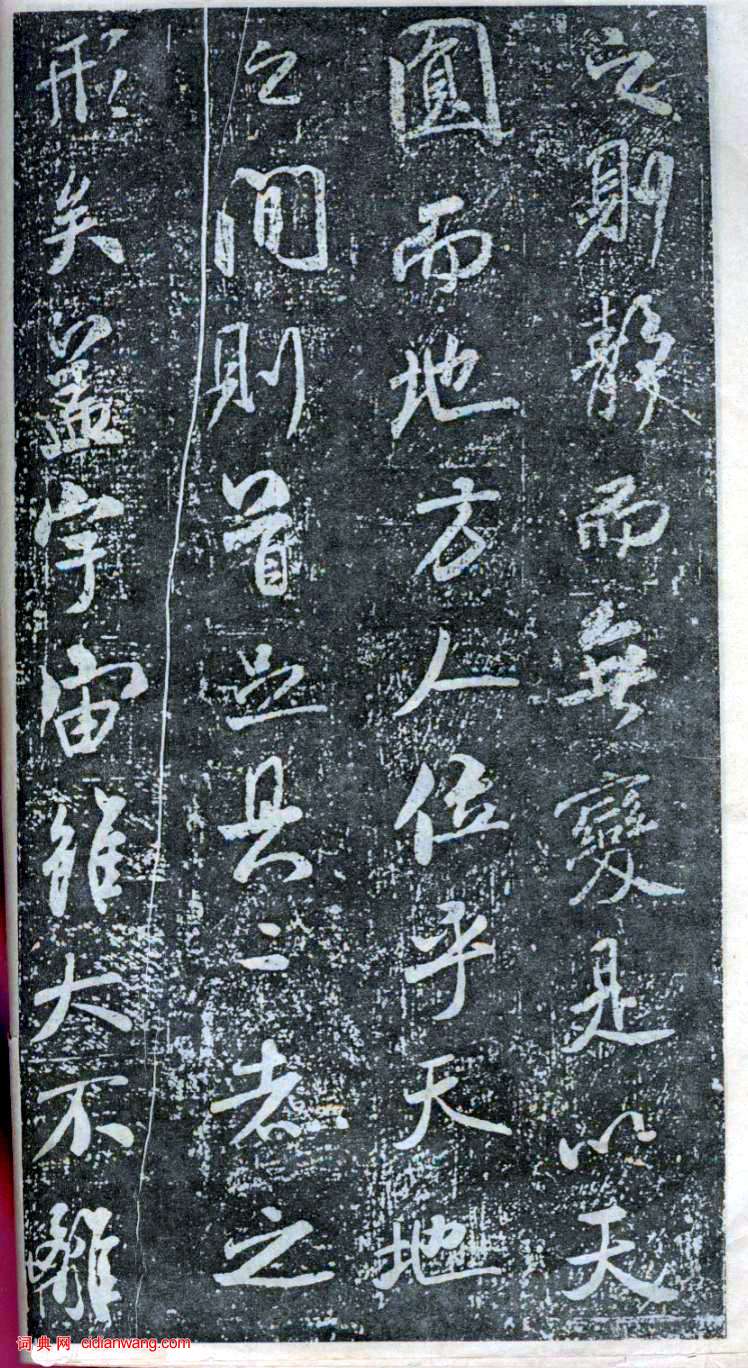 之則靜而無變是以天
圓而地方人位乎天地
之間則首足具二者之
形矣蓋宇宙雖大不離
词典网 cidianwang.com